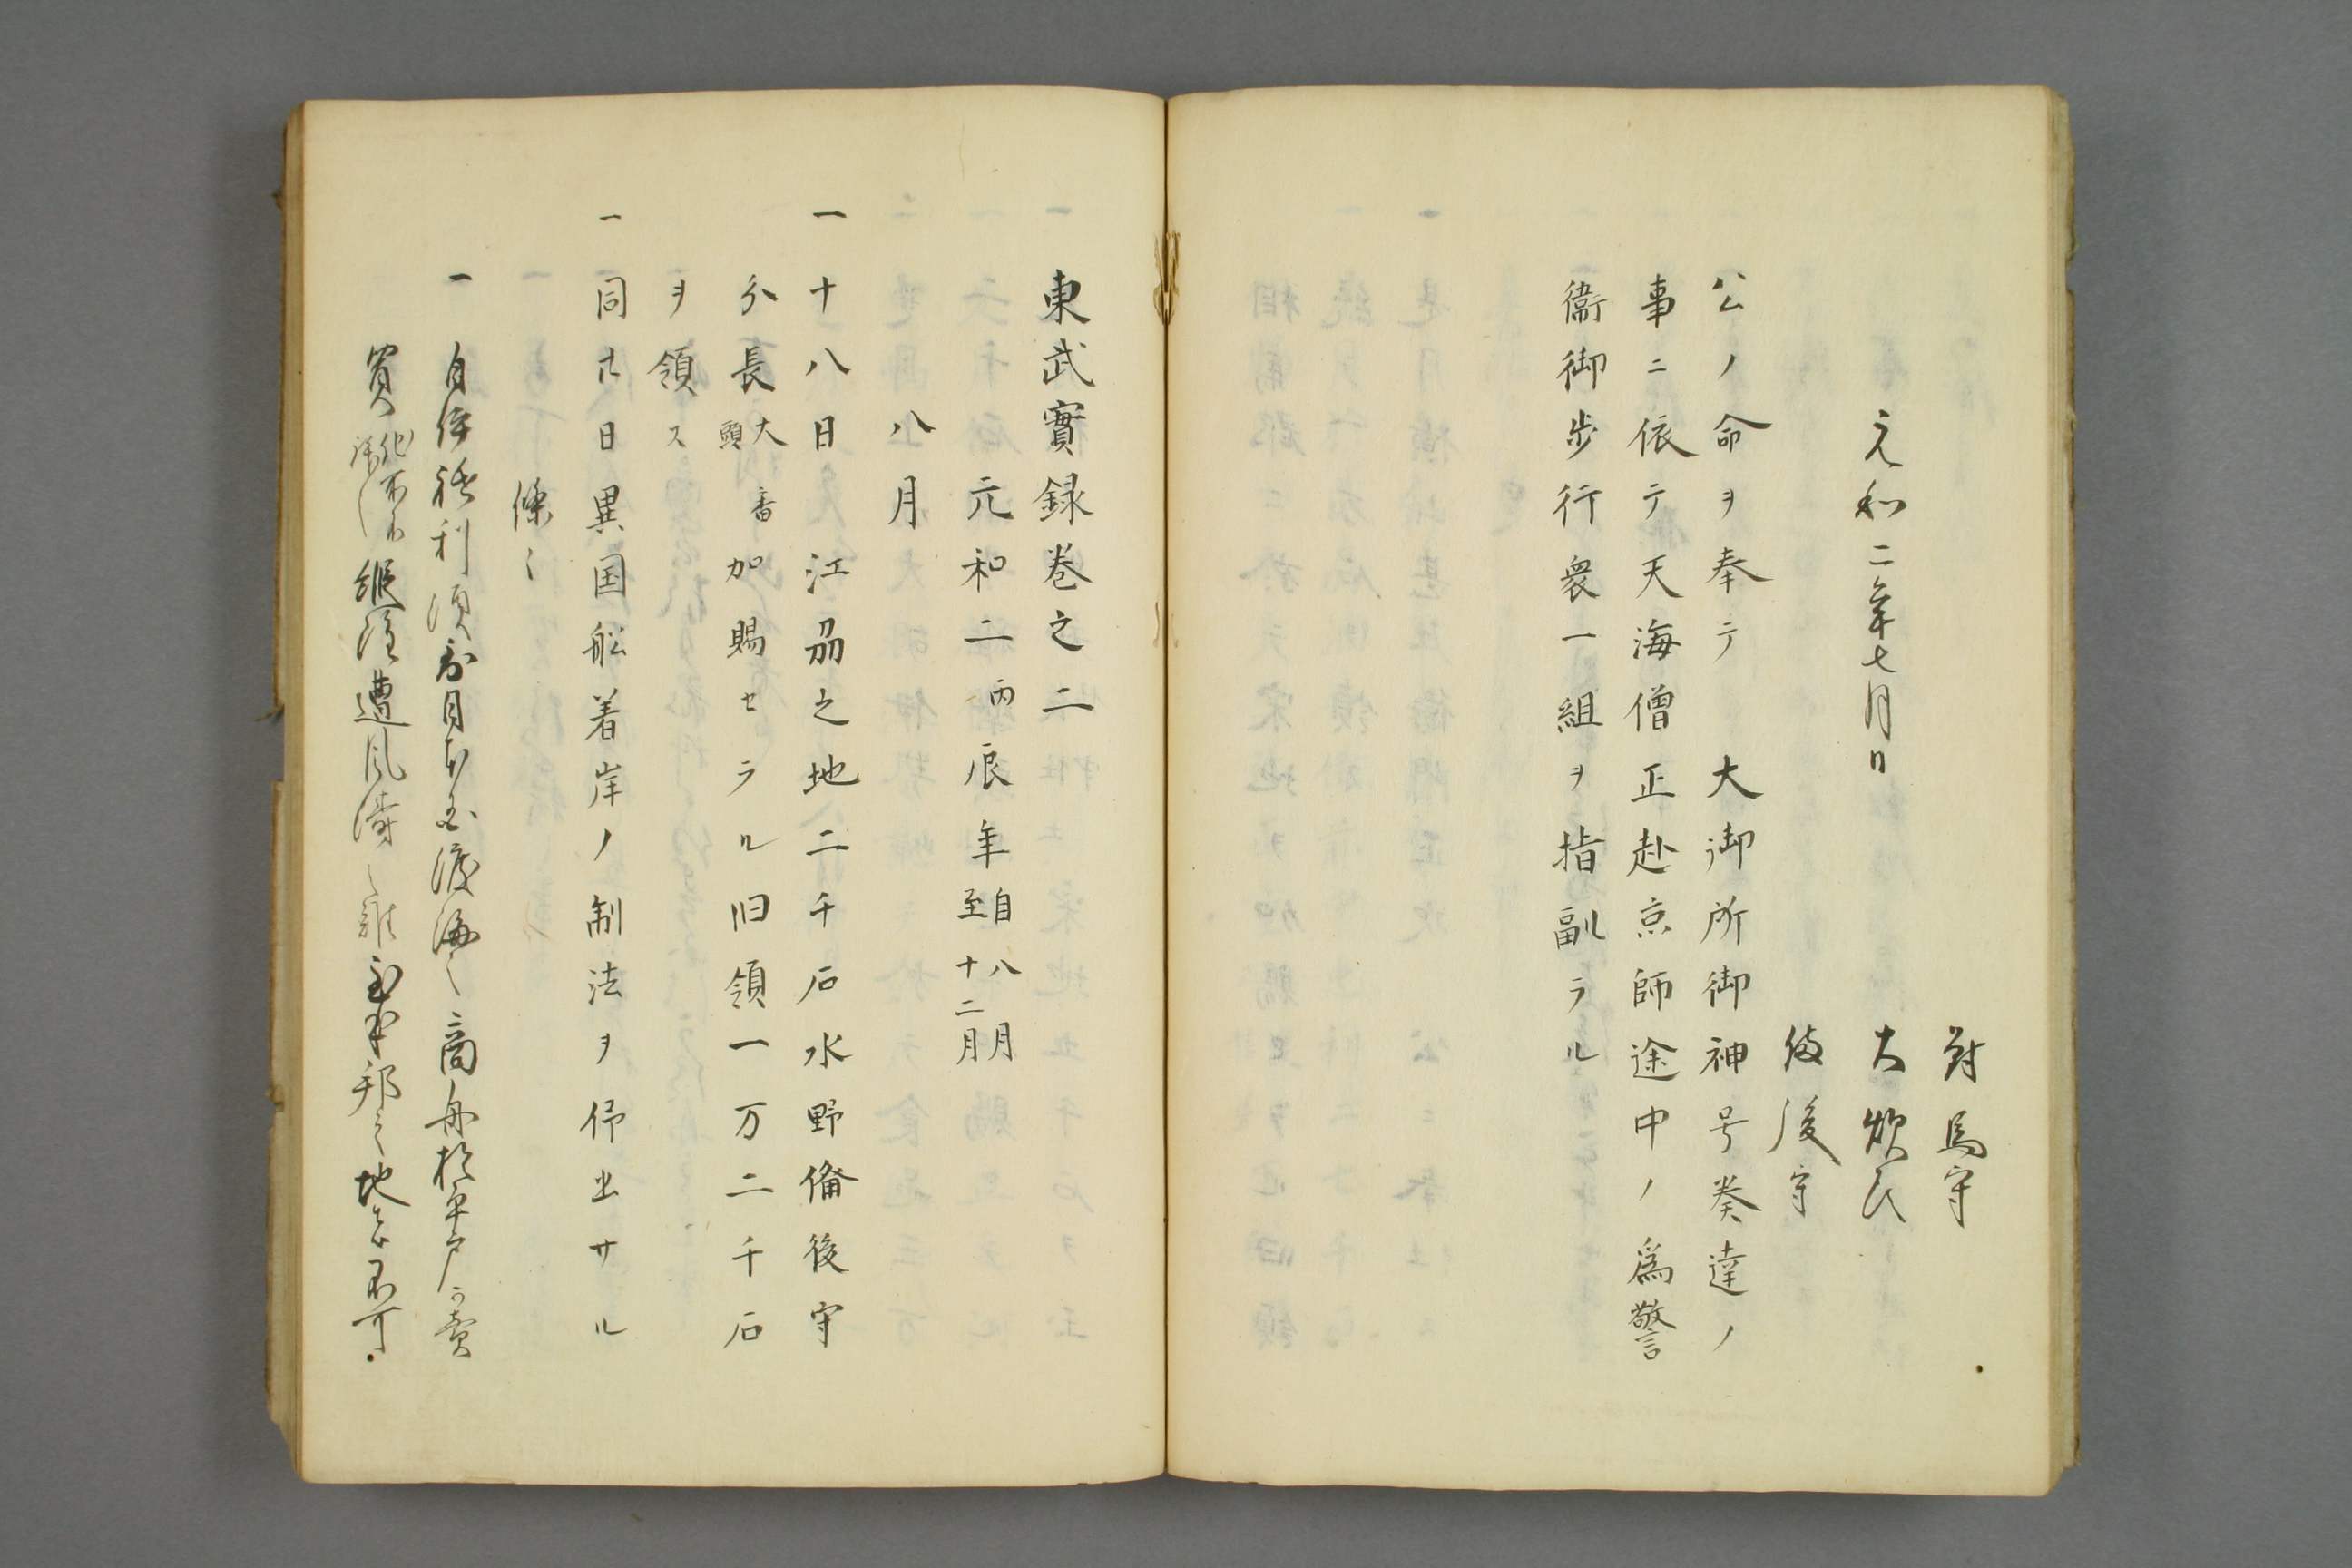 元和二年七月日
對馬守
大炊氏
備後守
公ノ命ヲ奉テ 大御所御神号奏達ノ
事ニ依テ天海僧正赴京師途中ノ爲警
衞御歩行衆一組ヲ指副ラル
東武實録巻之二
元和二丙辰年自八月至十二月
八月
一十八日江刕之地二千石水野備後守
分長大番頭加賜セラル旧領一万二千石
ヲ領ス
一同廿日異国舩着岸ノ制法ヲ仰出サル
條々
一自伊祗利須到日本国渡海之商舟於平戸可賣
買他所不許之縦雖遭風濤之難到本邦之地者不可